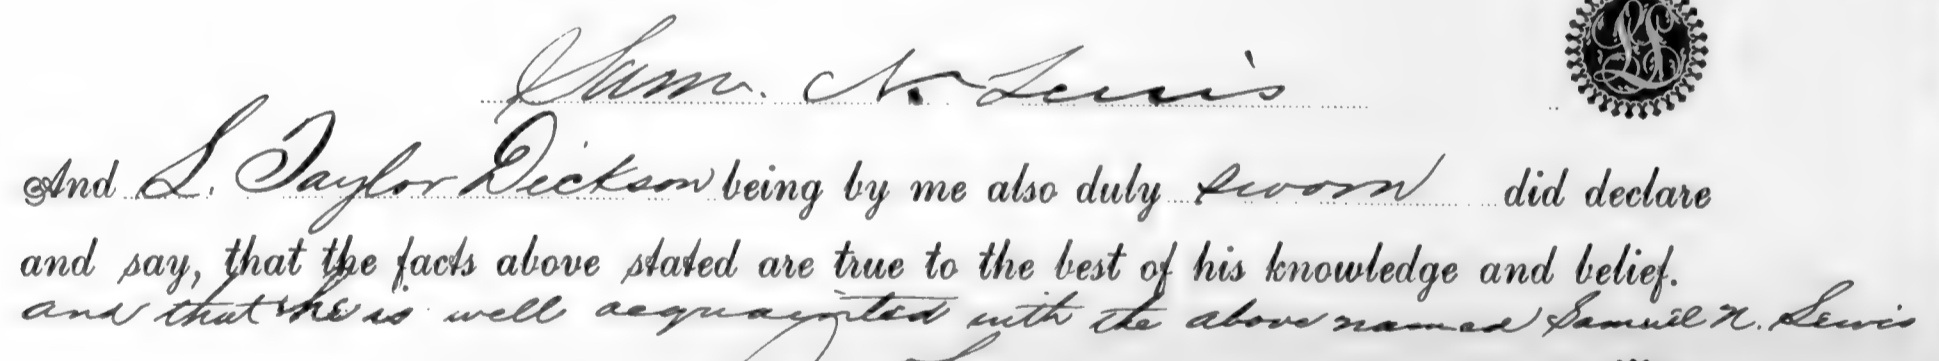 Sam. N. Lewis
LS
And S. Taylor Dickson being by me also duly sworn did declare
and say, that the facts above stated are true to the best of his knowledge and belief.
and that he is well acquainted with the above named Samuel N. Lewis